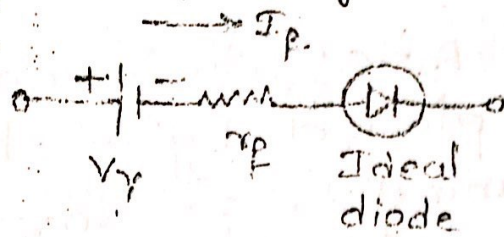 I_f.
+ −
V_γ r_f Ideal
diode